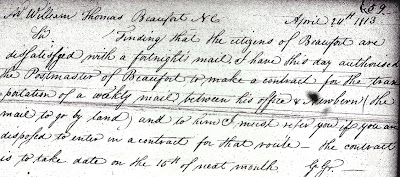 59.
Mr William Thomas Beaufort N C April 24th 1813
Sir Finding that the citizens of Beaufort are
dissatisfied with a fortnights mail, I have this day authorised
the Postmaster of Beaufort to make a contract for the tran
portation of a weekly mail between his office & Newbern (the
mail to go by land) and to him I must refer you if you are
disposed to enter in a contract for that route – the contract
is to take date on the 15th of next month G. Gr. —